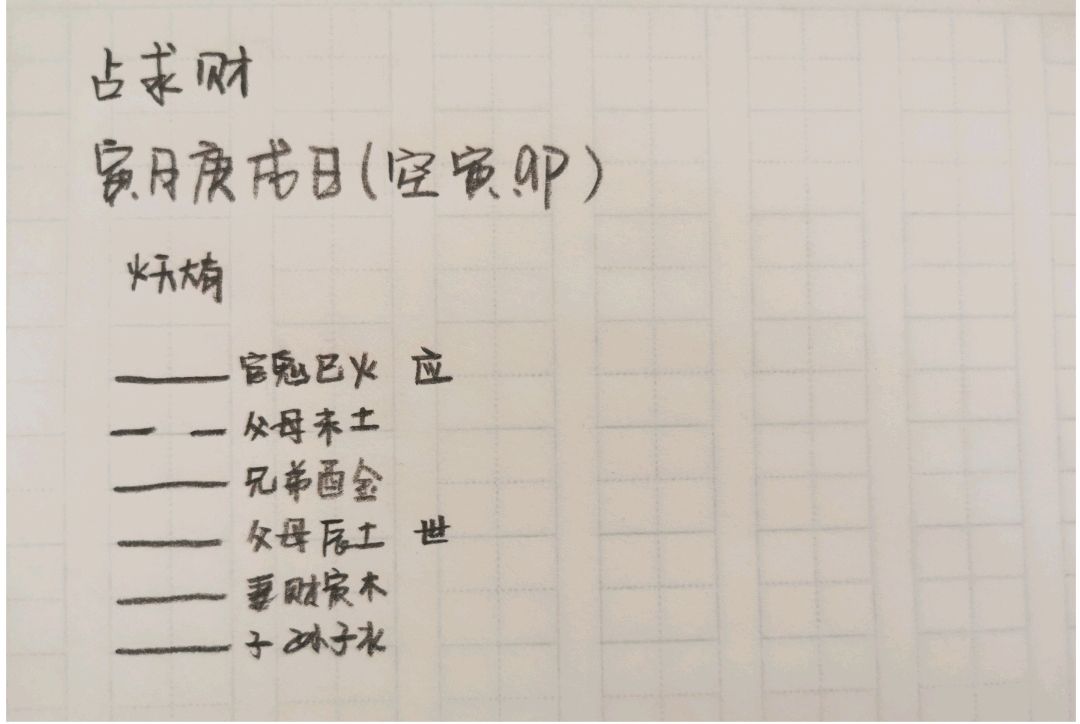 占求财
寅月庚戌日(空寅.卯)
火天大有
官鬼巳火 应
父母未土
兄弟酉金
父母辰土 世
妻财寅木
子孙子水